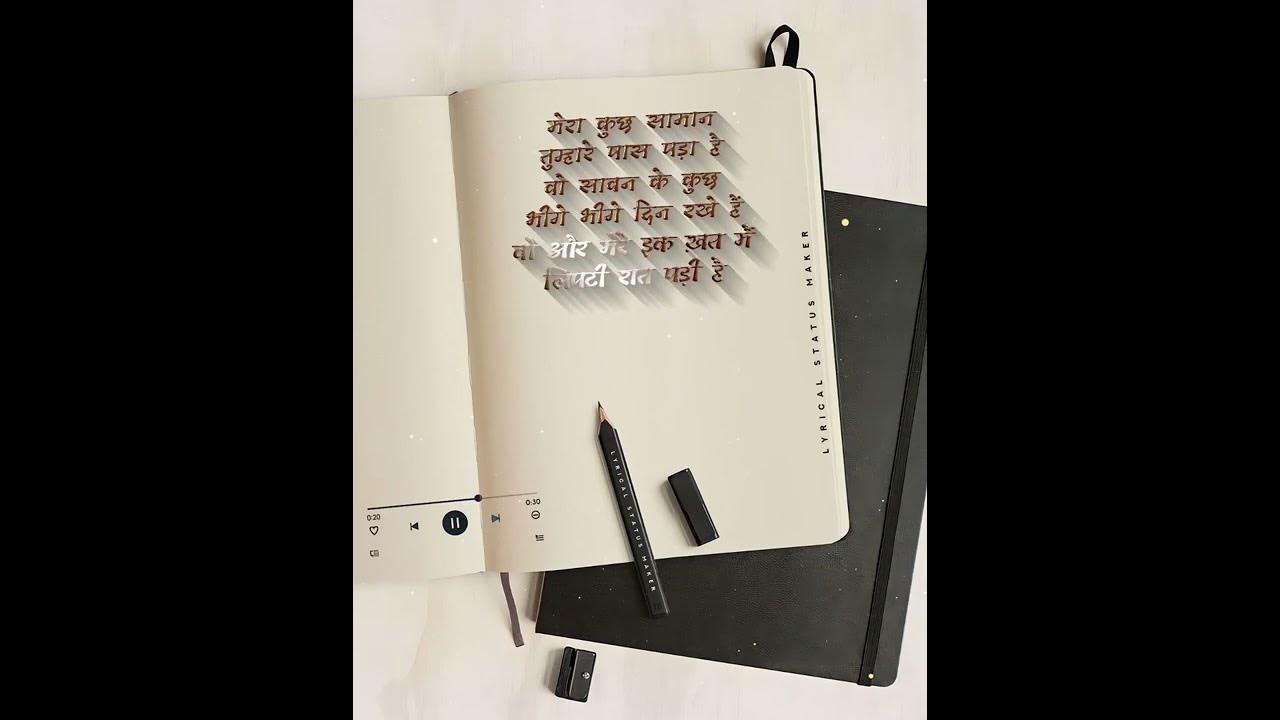 मेरा कुछ सामान
तुम्हारे पास पड़ा है
वो सावन के कुछ
भीगे भीगे दिन रखे हैं
वो और मेरे इक ख़त में
लिपटी रात पड़ी है
LYRICAL STATUS MAKER
LYRICAL STATUS MAKER
0:20
0:30